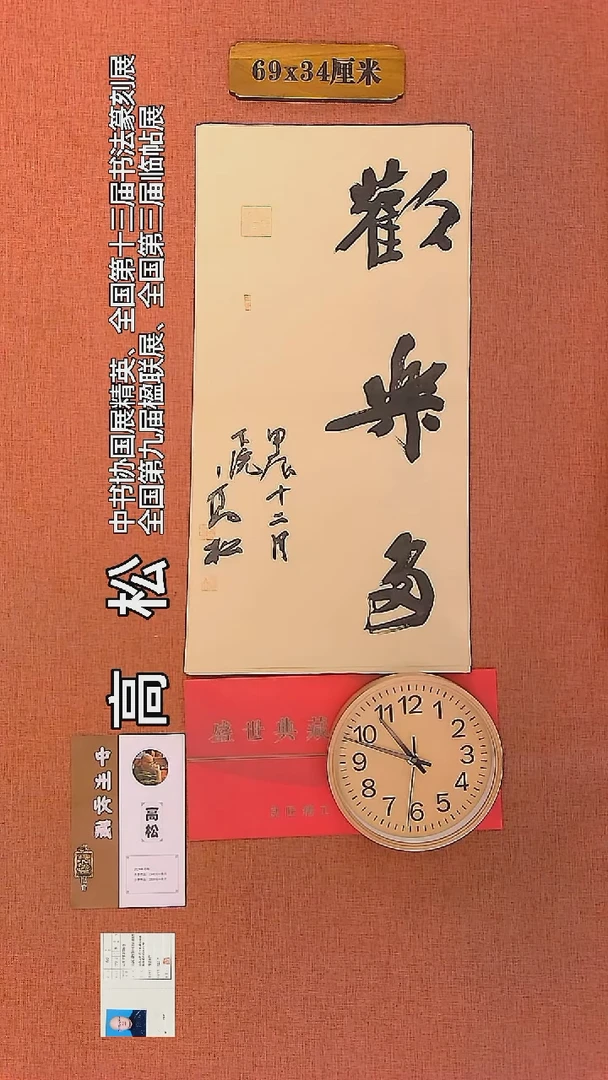 69x34厘米
歡樂多
甲辰十二月
下浣
高松
高 松
中书协国展精英、全国第十三届书法篆刻展
全国第九届楹联展、全国第三届临帖展
盛世典藏
高松
12
1
2
3
4
5
6
7
8
9
10
11